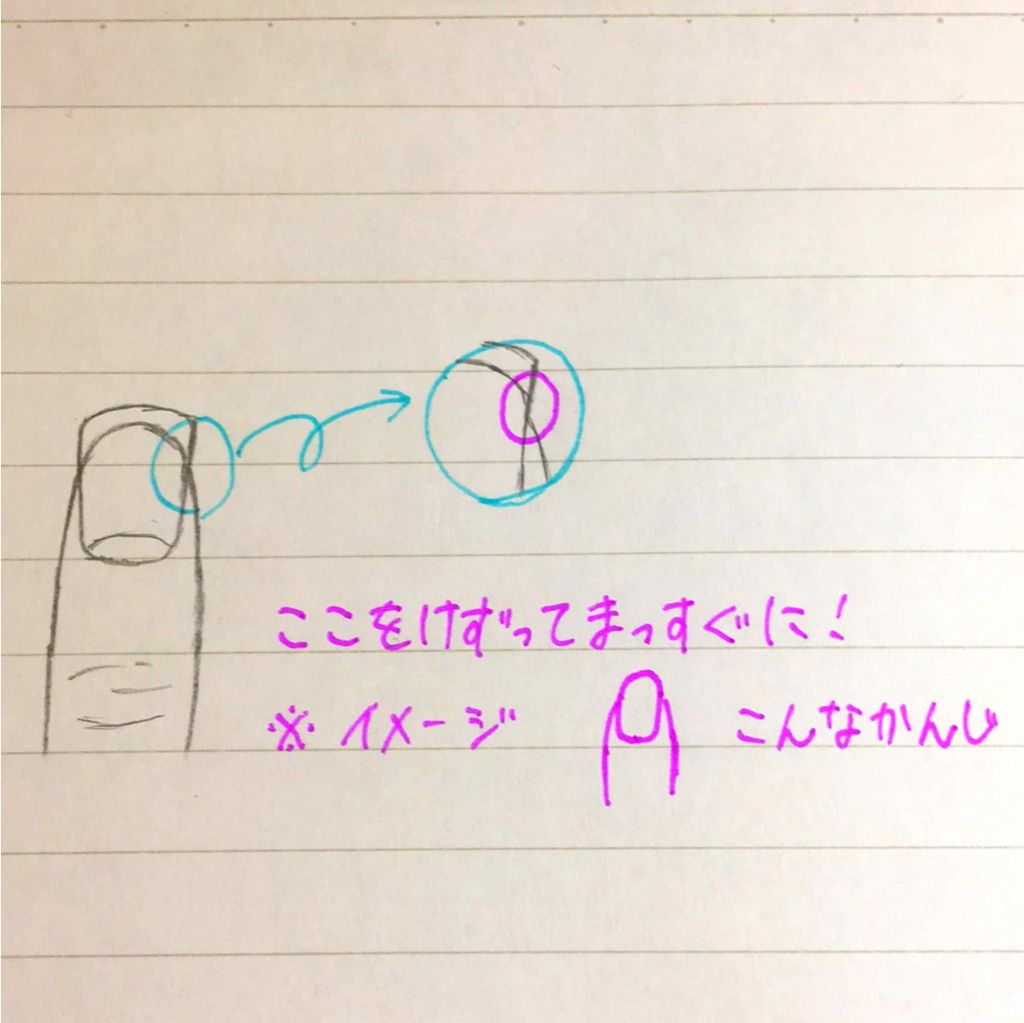 ここをけずってまっすぐに!
※ イメージ こんなかんじ